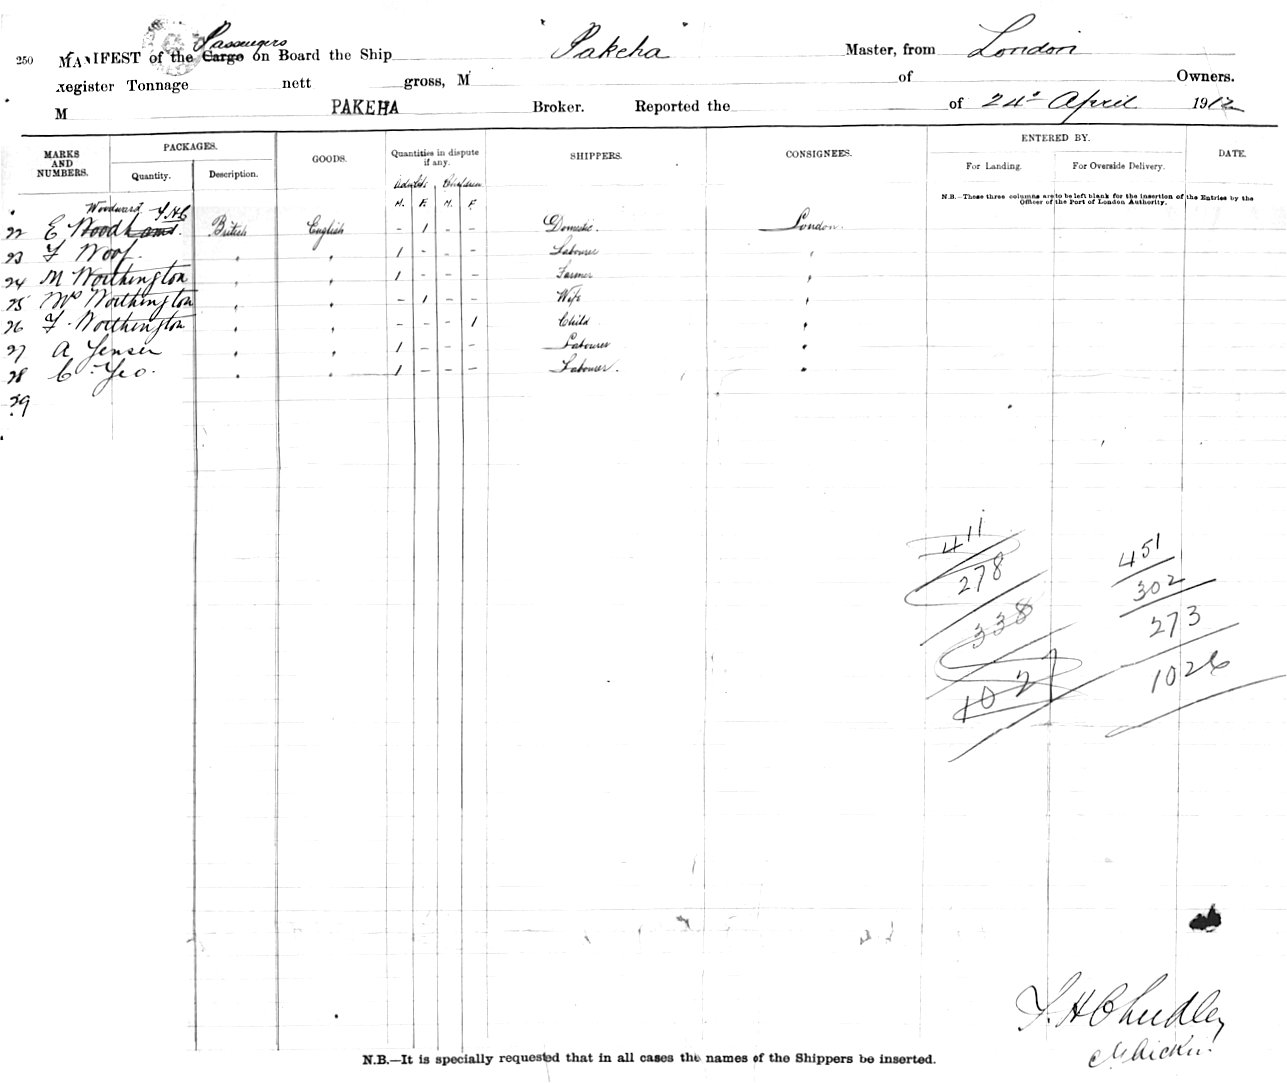 Passengers
250 MANIFEST of the Cargo on Board the Ship Pakeha Master, from London
Register Tonnage nett gross, M of Owners.
M PAKEHA Broker. Reported the of 24th April 1912
MARKS AND NUMBERS. PACKAGES. GOODS. Quantities in dispute if any. SHIPPERS. CONSIGNEES. ENTERED BY. DATE.
Quantity. Description. For Landing. For Overside Delivery.
Adults Children
M. F. M. F
N.B.—These three columns are to be left blank for the insertion of the Entries by the
Officer of the Port of London Authority.
Woodward F.H.C
22 E British English - 1 - - Domestic. London.
23 F Woof. " " 1 - - - Labourer "
24 M Worthington " " 1 - - - Farmer "
25 Mrs Worthington " " - 1 - - Wife "
26 F. Worthington " " - - - 1 Child "
27 A " " 1 - - - Labourer "
28 C. Yeo. " " 1 - - - Labourer. "
29
411 451
278 302
338 273
1027 1026
F. H Chudley
N.B.—It is specially requested that in all cases the names of the Shippers be inserted.